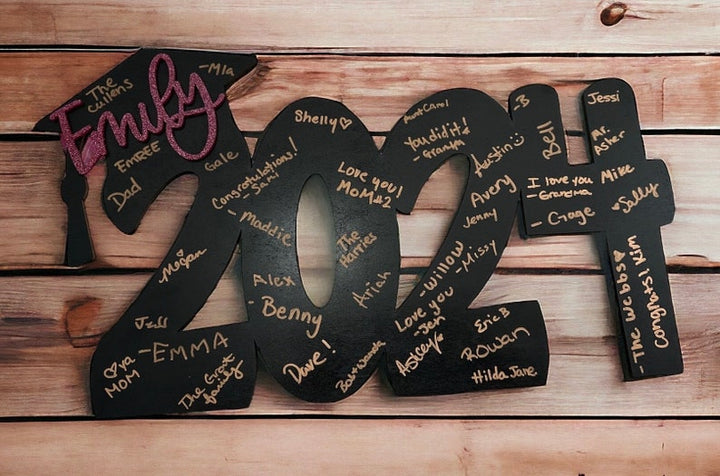 Emily
The
Cullens
-Mia
EmREE
Dad
Gale
Megan
Jeff
♡ya
MOM
-EMMA
The Grant
family
Shelly♡
Congratulations!
-Sam
-Maddie
Love you!
MOM#2
The
Harries
Alex
-Benny
Ariah
Dave!
Aunt Carol
You did it!
-Grampa
Austin☺
Avery
Jenny
-Missy
Willow
Love you
Jen
Ashley
Eric B
Rowan
Hilda Jane
-B
Bell
Jessi
Mr.
Asher
I love you
-Grandma
Mike
-Gage
♡Sally
-The Webbs♡
Congrats! Kim
2024